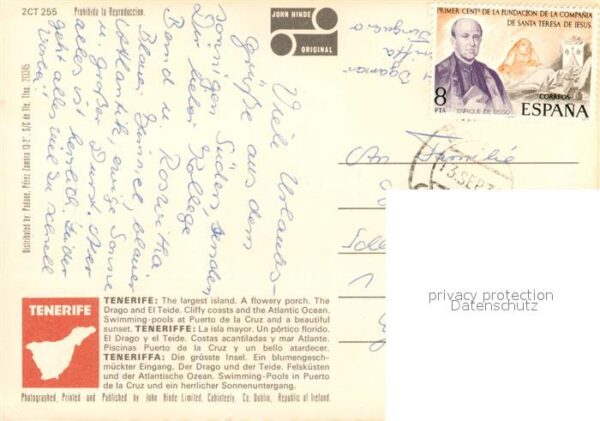 2CT 255 Prohibida la Reproduccion.
JOHN HINDE
ORIGINAL
PRIMER CENTº DE LA FUNDACION DE LA COMPAÑIA
DE SANTA TERESA DE JESUS.
8
PTA
ENRIQUE DE OSSO
CORREOS
ESPAÑA
13.SEP.
Viele Urlaubs-
grüße aus dem
sonnigen Süden, senden
Dir lieber Kollege
Bernd u. Roswitha
Blauer Himmel, blauer
Atlantik, ewige Sonne
u. großer Durst. Aber
alles ist herrlich. Leider
geht alles viel zu schnell
vorbei!
An Familie
privacy protection
Datenschutz
Distributed by: Padane, Pérez Zamora 13-2° S/C de Tfe. Tfno.
TENERIFE
TENERIFE: The largest island. A flowery porch. The
Drago and El Teide. Cliffy coasts and the Atlantic Ocean.
Swimming-pools at Puerto de la Cruz and a beautiful
sunset. TENERIFFE: La isla mayor. Un pórtico florido.
El Drago y el Teide. Costas acantiladas y mar Atlante.
Piscinas Puerto de la Cruz y un bello atardecer.
TENERIFFA: Die grösste Insel. Ein blumengesch-
mückter Eingang. Der Drago und der Teide. Felsküsten
und der Atlantische Ozean. Swimming-Pools in Puerto
de la Cruz und ein herrlicher Sonnenuntergang.
Photographed, Printed and Published by John Hinde Limited, Cabinteely, Co. Dublin, Republic of Ireland.